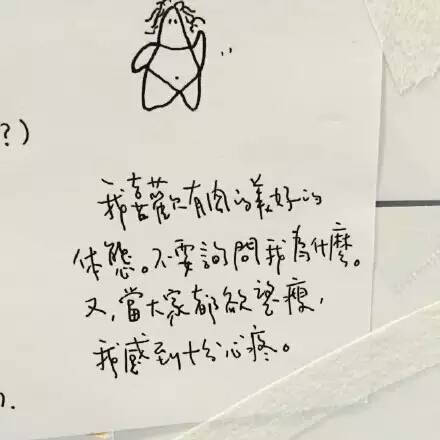 ?)
我喜歡有肉的美好的
体態。不要詢問我為什麼。
又,當大家都欲望瘦,
我感到十分心疼。
).